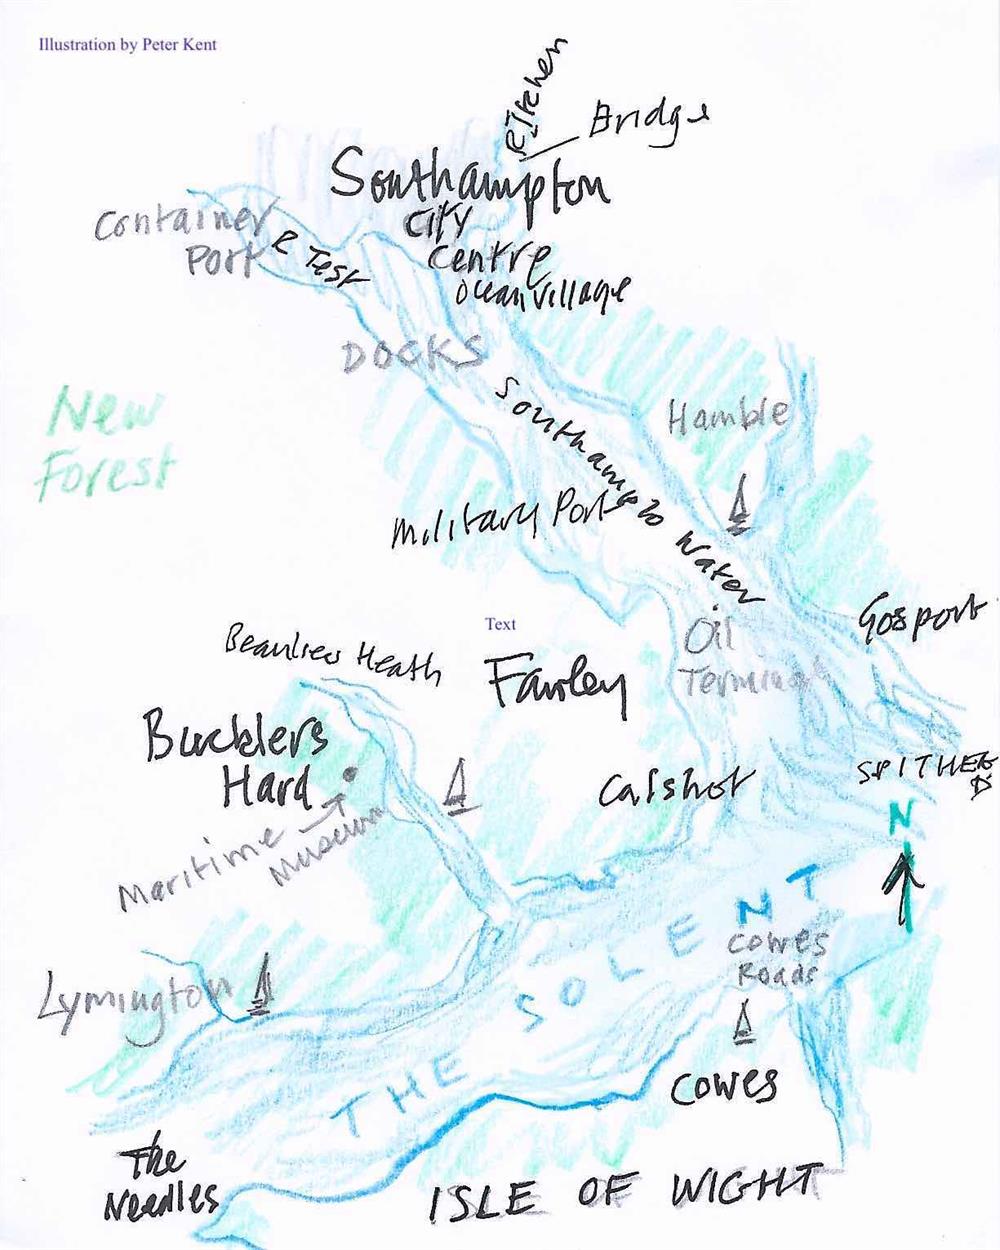 Illustration by Peter Kent
R Itchen
Bridge
Southampton
City
Centre
Ocean Village
Container
Port
R Test
DOCKS
New
Forest
Hamble
Southampton Water
Military Port
Gosport
Text
Oil
Terminal
Beaulieu Heath
Fawley
Bucklers
Hard
Calshot
SPITHEAD
Maritime
Museum
N
THE SOLENT
Cowes
Roads
Lymington
Cowes
The
Needles
ISLE OF WIGHT